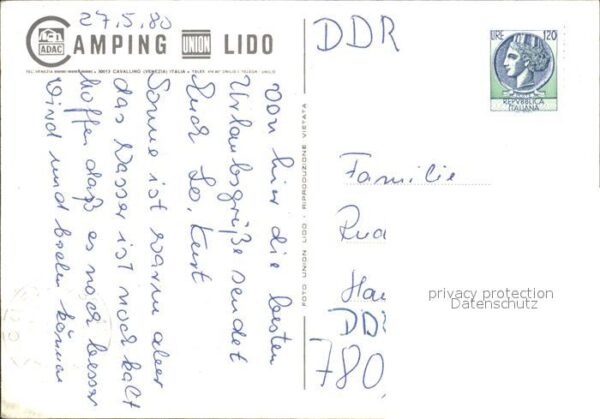 27.5.80
ACI
ADAC
CAMPING UNION LIDO
30013 CAVALLINO (VENEZIA) ITALIA
Von hier die besten
Urlaubsgrüße sendet
Euch Lo, Kurt
Sonne ist warm aber
das Wasser ist noch kalt
hoffen daß es noch besser
wird und baden können
FOTO UNION LIDO - RIPRODUZIONE VIETATA
DDR
LIRE 120
REPVBBLICA
ITALIANA
Familie
Rud
Ha
DD
780
privacy protection
Datenschutz